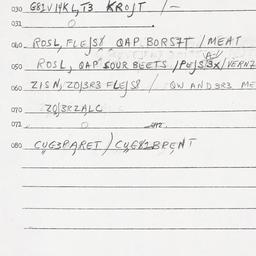 030 G81V14KL,T3 KROJT /-
031 O .
040 ROSL, FLEJS8 QAP BORS7T / MEAT
050 ROSL, QAP SOUR BEETS /
060 ZISN, ZO/3R3 FLEJS8 / QW AND3R3 ME
070 ZO/3RZALC
071 O
080 CUG3PARET / CUG81BRENT